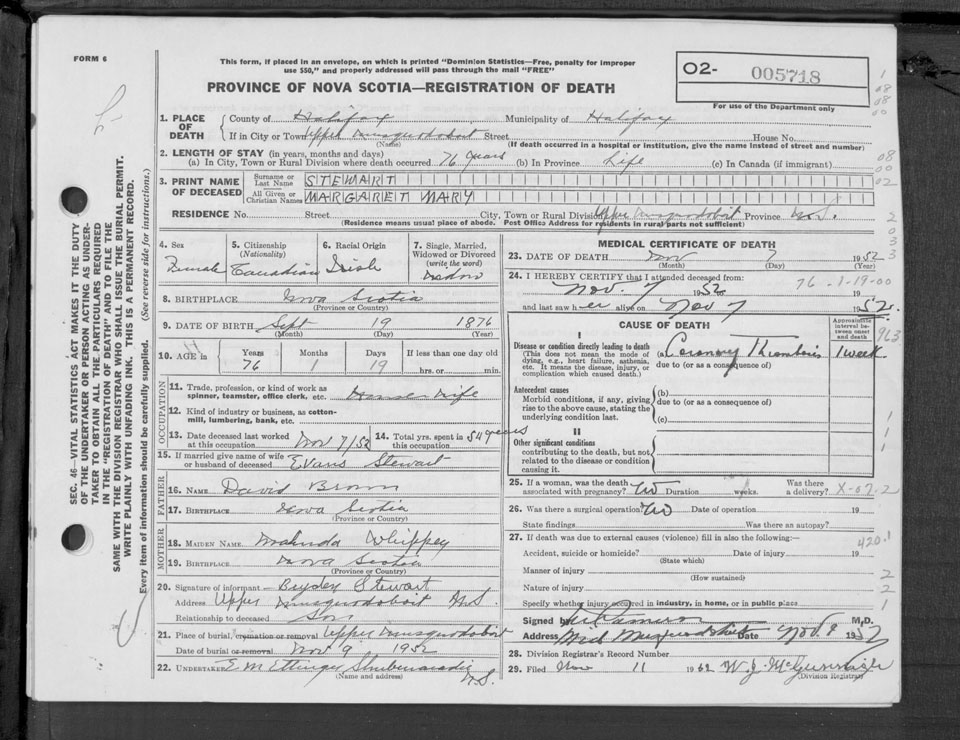 FORM 6
This form, if placed in an envelope, on which is printed "Dominion Statistics—Free, penalty for improper
use $50," and properly addressed will pass through the mail "FREE"
PROVINCE OF NOVA SCOTIA—REGISTRATION OF DEATH
O2- 005718
For use of the Department only
1. PLACE OF DEATH
County of Halifax Municipality of Halifax
If in City or Town Upper Musquodoboit Street House No.
(Name) (If death occurred in a hospital or institution, give the name instead of street and number)
2. LENGTH OF STAY (in years, months and days)
(a) In City, Town or Rural Division where death occurred 76 years (b) In Province Life (c) In Canada (if immigrant)
3. PRINT NAME OF DECEASED
Surname or Last Name STEWART
All Given or Christian Names MARGARET MARY
RESIDENCE No. Street City, Town or Rural Division Upper Musquodoboit Province N.S.
(Residence means usual place of abode. Post Office Address for residents in rural parts not sufficient)
4. Sex Female
5. Citizenship (Nationality) Canadian
6. Racial Origin Irish
7. Single, Married, Widowed or Divorced (write the word) Widow
8. BIRTHPLACE Nova Scotia
(Province or Country)
9. DATE OF BIRTH Sept 19 1876
(Month) (Day) (Year)
10. AGE in Years 76 Months 1 Days 19 If less than one day old hrs. or min.
OCCUPATION
11. Trade, profession, or kind of work as spinner, teamster, office clerk, etc. House Wife
12. Kind of industry or business, as cotton-mill, lumbering, bank, etc.
13. Date deceased last worked at this occupation Nov 7/52
14. Total yrs. spent in this occupation 54 years
15. If married give name of wife or husband of deceased Evans Stewart
FATHER
16. NAME David Brown
17. BIRTHPLACE Nova Scotia
(Province or Country)
MOTHER
18. MAIDEN NAME Malinda Whippey
19. BIRTHPLACE Nova Scotia
(Province or Country)
20. Signature of informant Stewart
Address Upper Musquodoboit N.S.
Relationship to deceased Son
21. Place of burial, cremation or removal Upper Musquodoboit
Date of burial or removal Nov 9 1952
22. UNDERTAKER E M Ettinger Shubenacadie N.S.
(Name and address)
MEDICAL CERTIFICATE OF DEATH
23. DATE OF DEATH Nov 7 1952
(Month) (Day) (Year)
24. I HEREBY CERTIFY that I attended deceased from:
Nov. 7 1952 to 19
76-1-19-00
and last saw her alive on Nov 7 1952
CAUSE OF DEATH
Approximate interval between onset and death
I
Disease or condition directly leading to death
(This does not mean the mode of dying, e.g., heart failure, asthenia, etc. It means the disease, injury, or complication which caused death.)
(a) Coronary Thrombosis 1 week
due to (or as a consequence of)
Antecedent causes
Morbid conditions, if any, giving rise to the above cause, stating the underlying condition last.
(b)
due to (or as a consequence of)
(c)
II
Other significant conditions
contributing to the death, but not related to the disease or condition causing it.
25. If a woman, was the death associated with pregnancy? No Duration weeks. Was there a delivery? X-07-2
26. Was there a surgical operation? No Date of operation 19
State findings Was there an autopsy?
27. If death was due to external causes (violence) fill in also the following:—
420.1
Accident, suicide or homicide? Date of injury 19
(State which)
Manner of injury
(How sustained)
Nature of injury
Specify whether injury occurred in industry, in home, or in public place
Signed M.D.
Address Mid Musquodoboit Date Nov. 8 1952
28. Division Registrar's Record Number
29. Filed Nov 11 1952 W. J.
(Division Registrar)
SEC. 46—VITAL STATISTICS ACT MAKES IT THE DUTY
OF THE UNDERTAKER OR PERSON ACTING AS UNDER-
TAKER TO OBTAIN ALL THE PARTICULARS REQUIRED
IN THE "REGISTRATION OF DEATH" AND TO FILE THE
SAME WITH THE DIVISION REGISTRAR WHO SHALL ISSUE THE BURIAL PERMIT.
WRITE PLAINLY WITH UNFADING INK. THIS IS A PERMANENT RECORD.
Every item of information should be carefully supplied. (See reverse side for instructions.)